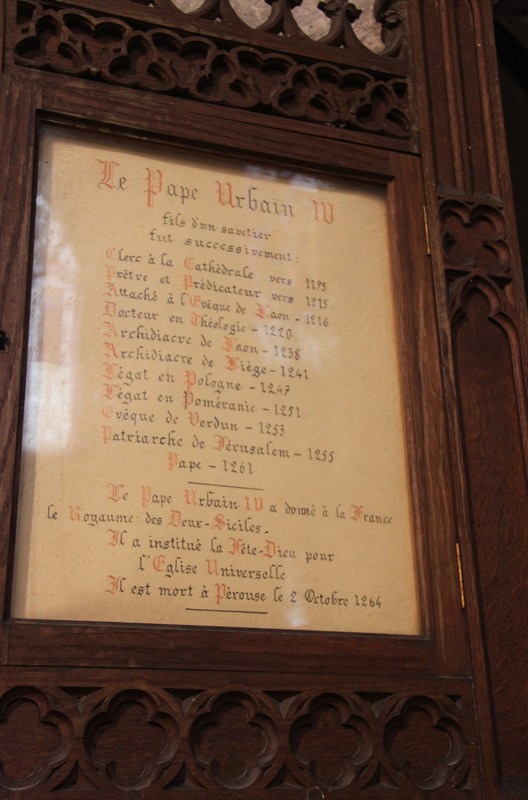 Le Pape Urbain IV
fils d'un savetier
fut successivement :
Clerc à la Cathédrale vers 1195
Prêtre et Prédicateur vers 1215
Attaché à l'Evêque de Laon - 1216
Docteur en Théologie - 1220
Archidiacre de Laon - 1238
Archidiacre de Liège - 1241
Légat en Pologne - 1247
Légat en Poméranie - 1251
Evêque de Verdun - 1253
Patriarche de Jérusalem - 1255
Pape - 1261
Le Pape Urbain IV a donné à la France
le Royaume des Deux-Siciles.
Il a institué la Fête-Dieu pour
l'Eglise Universelle
Il est mort à Pérouse le 2 Octobre 1264